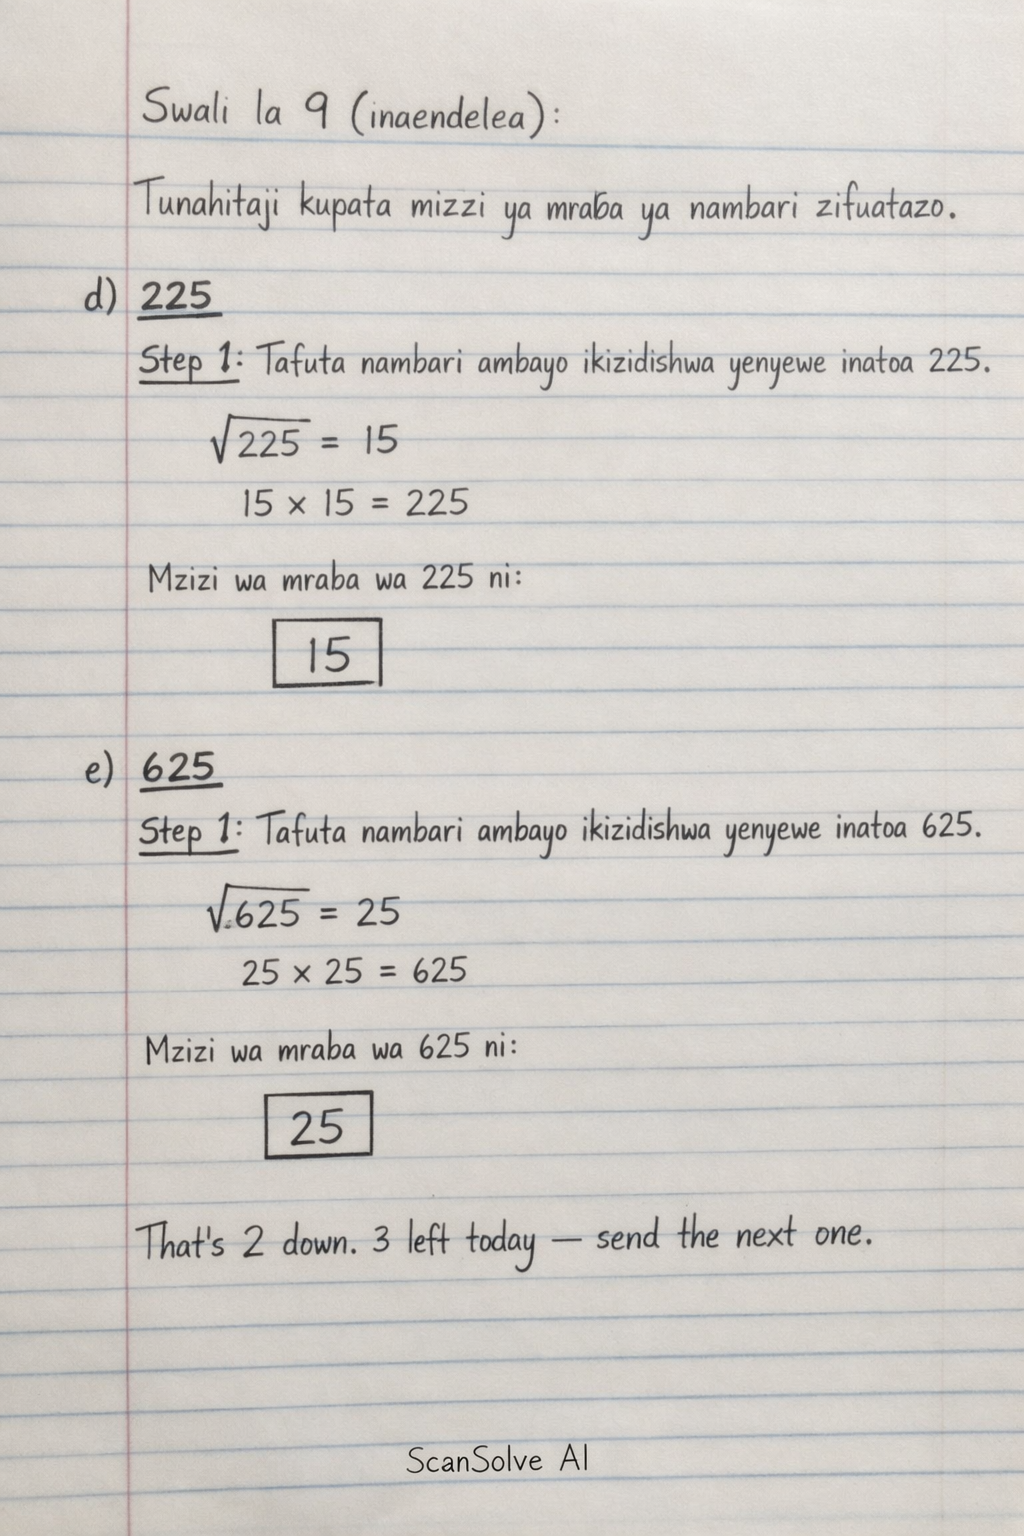 Swali la 9 (inaendelea):
Tunahitaji kupata mizzi ya mraba ya nambari zifuatazo.
d) 225
Step 1: Tafuta nambari ambayo ikizidishwa yenyewe inatoa 225.
√225 = 15
15 × 15 = 225
Mzizi wa mraba wa 225 ni:
15
e) 625
Step 1: Tafuta nambari ambayo ikizidishwa yenyewe inatoa 625.
√.625 = 25
25 × 25 = 625
Mzizi wa mraba wa 625 ni:
25
That's 2 down. 3 left today — send the next one.
ScanSolve AI